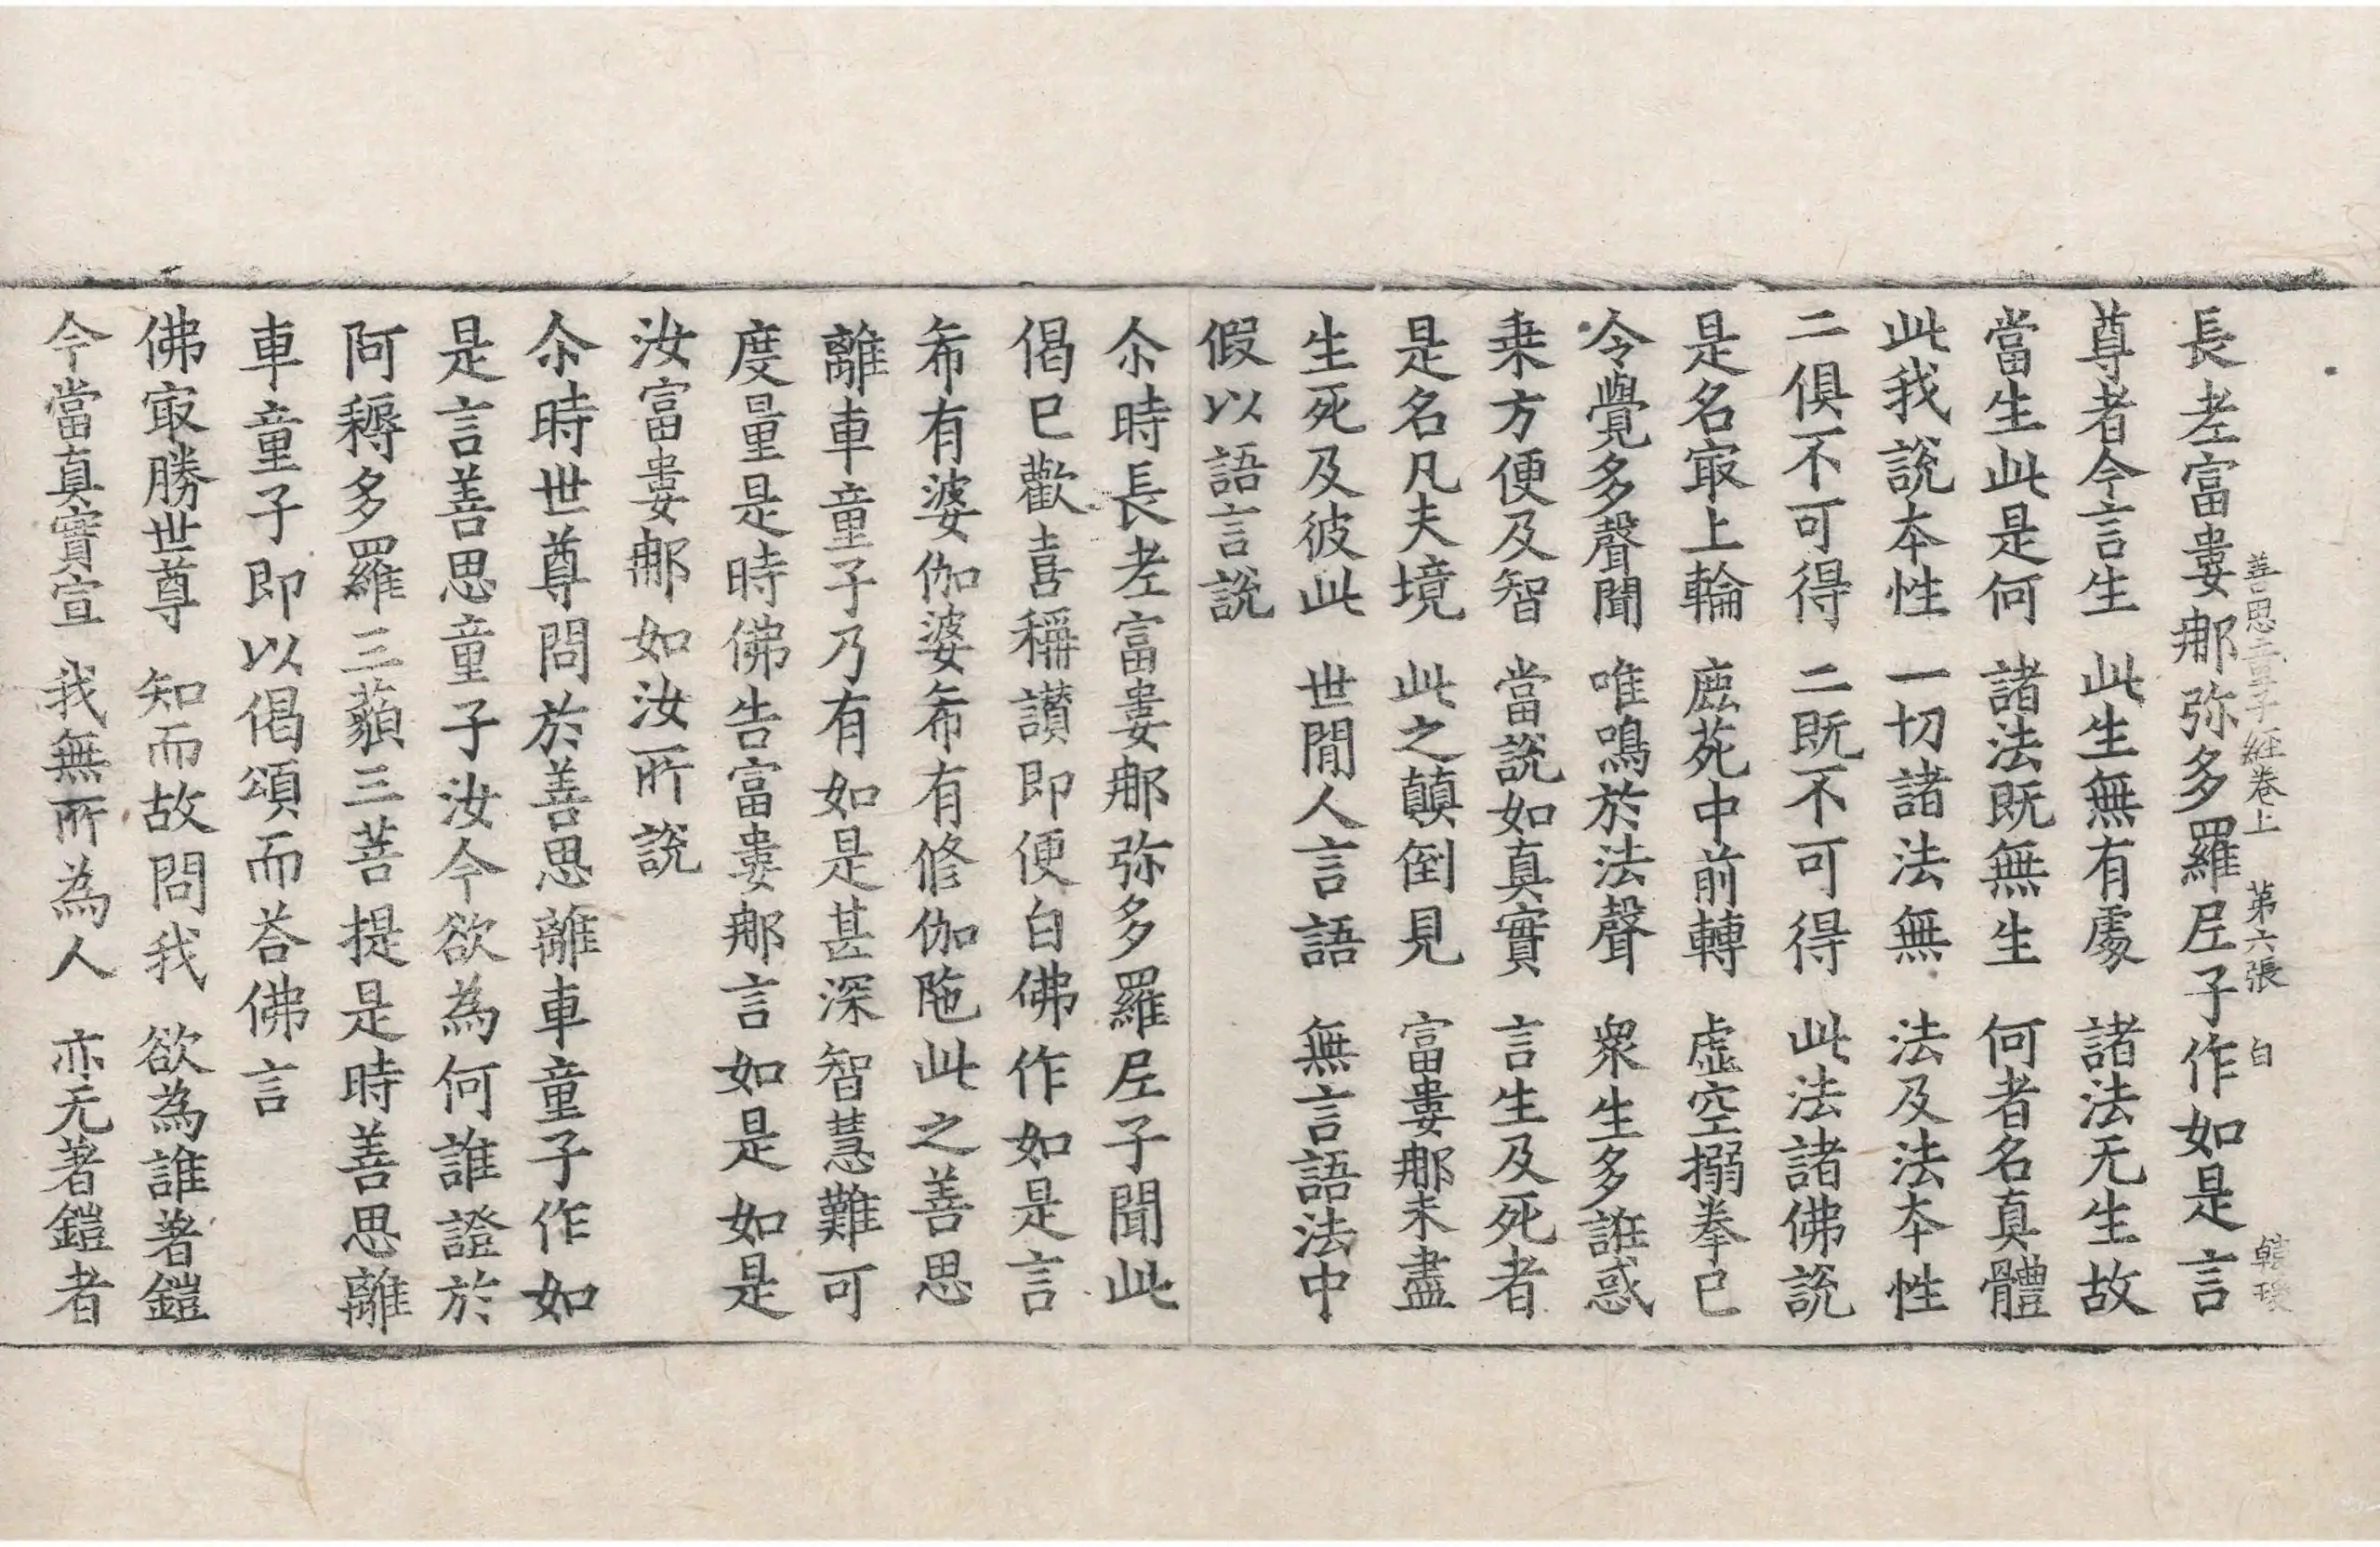 善思童子經卷上 第六張 白
長老富婁那弥多羅尼子作如是言
尊者今言生 此生無有處 諸法无生故
當生此是何 諸法既無生 何者名真體
此我說本性 一切諸法無 法及法本性
二俱不可得 二既不可得 此法諸佛說
是名㝡上輪 鹿苑中前轉 虛空搦拳已
令覺多聲聞 唯鳴於法聲 衆生多誑惑
乗方便及智 當說如真實 言生及死者
是名凡夫境 此之顛倒見 富婁那未盡
生死及彼此 世間人言語 無言語法中
假以語言說
尒時長老富婁那弥多羅尼子聞此
偈已歡喜稱讃即便白佛作如是言
希有婆伽婆希有修伽陁此之善思
離車童子乃有如是甚深智慧難可
度量是時佛告富婁那言如是如是
汝富婁那如汝所說
尒時世尊問於善思離車童子作如
是言善思童子汝今欲為何誰證於
阿耨多羅三藐三菩提是時善思離
車童子即以偈頌而荅佛言
佛㝡勝世尊 知而故問我 欲為誰著鎧
今當真實宣 我無所為人 亦无著鎧者